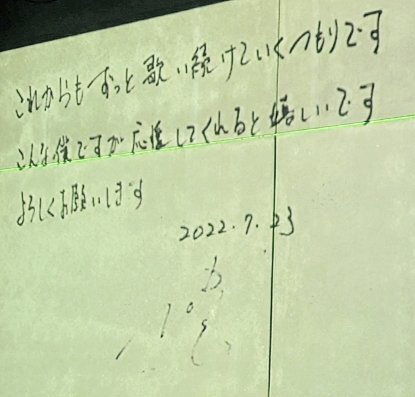 これからもずっと歌い続けていくつもりです
こんな僕ですが応援してくれると嬉しいです
よろしくお願いします
2022.7.23